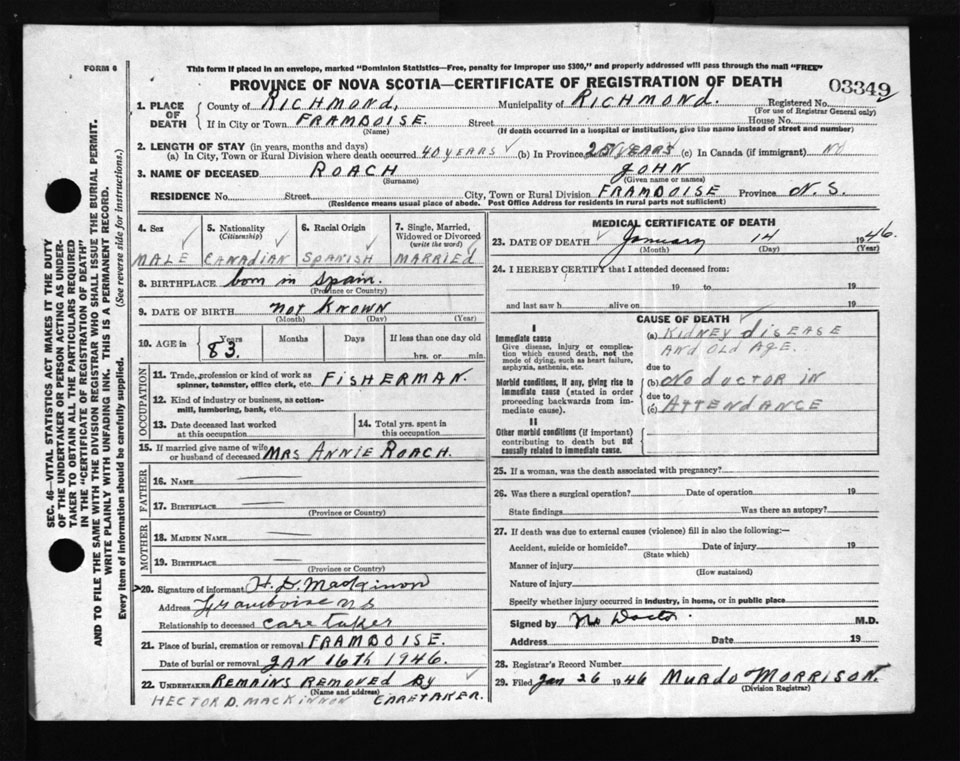 FORM 6
This form if placed in an envelope, marked "Dominion Statistics—Free, penalty for improper use $300," and properly addressed will pass through the mail "FREE"
PROVINCE OF NOVA SCOTIA—CERTIFICATE OF REGISTRATION OF DEATH
03349
1. PLACE OF DEATH
County of RICHMOND, Municipality of RICHMOND. Registered No.
(For use of Registrar General only)
If in City or Town FRAMBOISE. Street House No.
(Name) (If death occurred in a hospital or institution, give the name instead of street and number)
2. LENGTH OF STAY (in years, months and days)
(a) In City, Town or Rural Division where death occurred 40 YEARS (b) In Province 25 YEARS (c) In Canada (if immigrant) NO
3. NAME OF DECEASED ROACH JOHN
(Surname) (Given name or names)
RESIDENCE No. Street City, Town or Rural Division FRAMBOISE Province N.S.
(Residence means usual place of abode. Post Office Address for residents in rural parts not sufficient)
4. Sex
MALE
5. Nationality
(Citizenship)
CANADIAN
6. Racial Origin
SPANISH
7. Single, Married, Widowed or Divorced
(write the word)
MARRIED
8. BIRTHPLACE born in Spain.
(Province or Country)
9. DATE OF BIRTH NOT KNOWN
(Month) (Day) (Year)
10. AGE in Years Months Days If less than one day old
83. hrs. or min.
OCCUPATION
11. Trade, profession or kind of work as spinner, teamster, office clerk, etc. FISHERMAN.
12. Kind of industry or business, as cotton-mill, lumbering, bank, etc.
13. Date deceased last worked at this occupation
14. Total yrs. spent in this occupation
15. If married give name of wife or husband of deceased MRS ANNIE ROACH.
FATHER
16. NAME
17. BIRTHPLACE
(Province or Country)
MOTHER
18. MAIDEN NAME
19. BIRTHPLACE
(Province or Country)
20. Signature of informant H. D. MacKinnon
Address Framboise NS
Relationship to deceased caretaker
21. Place of burial, cremation or removal FRAMBOISE.
Date of burial or removal JAN 16TH 1946.
22. UNDERTAKER REMAINS REMOVED BY
(Name and address)
HECTOR D. MACKINNON CARETAKER.
MEDICAL CERTIFICATE OF DEATH
23. DATE OF DEATH January 14 1946.
(Month) (Day) (Year)
24. I HEREBY CERTIFY that I attended deceased from:
19 to 19
and last saw h alive on 19
CAUSE OF DEATH
I
Immediate cause
Give disease, injury or complication which caused death, not the mode of dying, such as heart failure, asphyxia, asthenia, etc.
(a) KIDNEY DISEASE
AND OLD AGE.
due to
Morbid conditions, if any, giving rise to immediate cause (stated in order proceeding backwards from immediate cause).
(b) NO DOCTOR IN
due to
(c) ATTENDANCE
II
Other morbid conditions (if important) contributing to death but not causally related to immediate cause.
25. If a woman, was the death associated with pregnancy?
26. Was there a surgical operation? Date of operation 19
State findings Was there an autopsy?
27. If death was due to external causes (violence) fill in also the following:—
Accident, suicide or homicide? Date of injury 19
(State which)
Manner of injury
(How sustained)
Nature of injury
Specify whether injury occurred in industry, in home, or in public place
Signed by No Doctor. M.D.
Address Date 19
28. Registrar's Record Number
29. Filed Jan 26 1946 MURDO MORRISON.
(Division Registrar)
SEC. 46—VITAL STATISTICS ACT MAKES IT THE DUTY
OF THE UNDERTAKER OR PERSON ACTING AS UNDER-
TAKER TO OBTAIN ALL THE PARTICULARS REQUIRED
IN THE "CERTIFICATE OF REGISTRATION OF DEATH"
AND TO FILE THE SAME WITH THE DIVISION REGISTRAR WHO SHALL ISSUE THE BURIAL PERMIT.
WRITE PLAINLY WITH UNFADING INK. THIS IS A PERMANENT RECORD.
Every item of information should be carefully supplied. (See reverse side for instructions.)